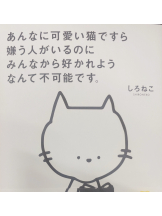 あんなに可愛い猫ですら
嫌う人がいるのに
みんなから好かれよう
なんて不可能です。
しろねこ